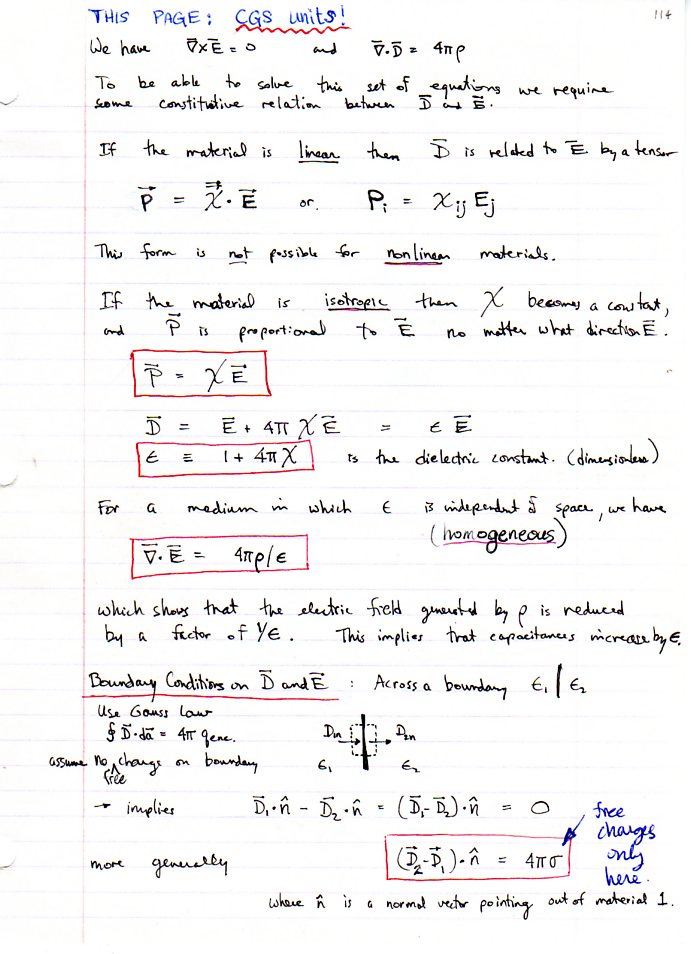 THIS PAGE: CGS units!
114
We have ∇⃗×E⃗ = 0 and ∇⃗·D⃗ = 4πρ
To be able to solve this set of equations we require
some constitutive relation between D⃗ and E⃗.
If the material is linear then D⃗ is related to E⃗ by a tensor
P⃗ = χ⃗⃗·E⃗ or. Pᵢ = χᵢⱼ Eⱼ
This form is not possible for nonlinear materials.
If the material is isotropic then χ becomes a constant,
and P⃗ is proportional to E⃗ no matter what direction E⃗.
P⃗ = χ E⃗
D⃗ = E⃗ + 4π χ E⃗ = ϵ E⃗
ϵ ≡ 1 + 4πχ is the dielectric constant. (dimensionless)
For a medium in which ϵ is independent of space, we have
(homogeneous)
∇⃗·E⃗ = 4πρ/ϵ
which shows that the electric field generated by ρ is reduced
by a factor of 1/ϵ. This implies that capacitances increase by ϵ.
Boundary Conditions on D⃗ and E⃗ : Across a boundary ϵ₁ | ϵ₂
Use Gauss Law
∮ D⃗·da⃗ = 4π qenc.
D₁ₙ D₂ₙ
assume no free charge on boundary
ϵ₁ ϵ₂
→ implies D⃗₁·n̂ − D⃗₂·n̂ = (D⃗₁−D⃗₂)·n̂ = 0
more generally (D⃗₂−D⃗₁)·n̂ = 4πσ
free
charges
only
here.
where n̂ is a normal vector pointing out of material 1.